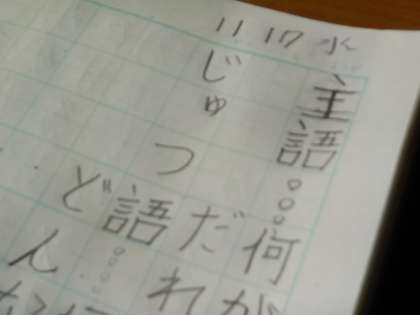 11 17 水
主語。。。何が
だれ
じゅつ語。。。
どん